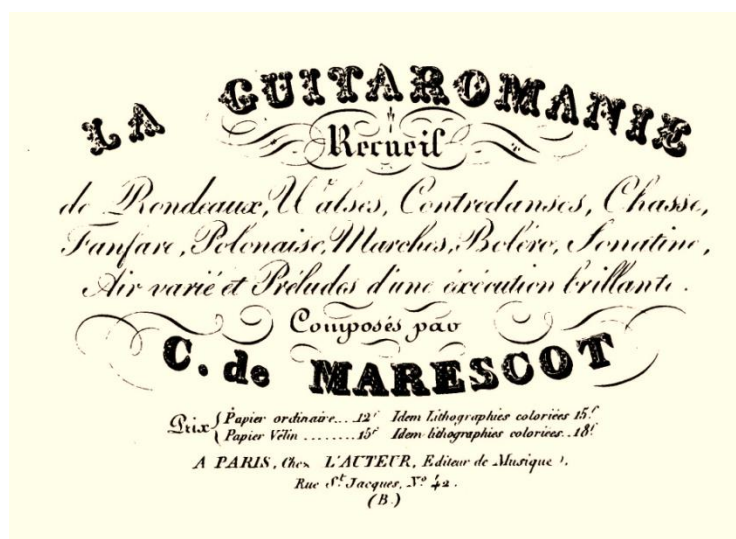 LA GUITAROMANIE
Recueil
de Rondeaux, Walses, Contredanses, Chasse,
Fanfare, Polonaise, Marches, Boléro, Sonatine,
Air varié et Préludes d'une éxécution brillante.
Composés par
C. de MARESCOT
Prix { Papier ordinaire....12f Idem Lithographies coloriées 15.f
Papier Vélin ........15f Idem lithographies coloriées..18f
A PARIS, Chez L'AUTEUR, Editeur de Musique,
Rue St. Jacques, No 42.
(B.)